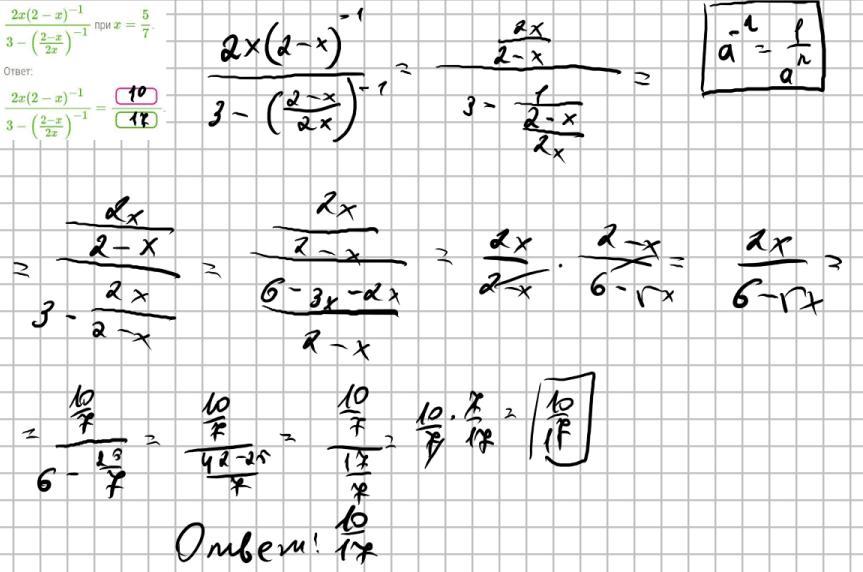 \frac{2x(2-x)^{-1}}{3-\left(\frac{2-x}{2x}\right)^{-1}} при x = \frac{5}{7}.
Ответ:
\frac{2x(2-x)^{-1}}{3-\left(\frac{2-x}{2x}\right)^{-1}} = \frac{10}{17}.
\frac{2x(2-x)^{-1}}{3-\left(\frac{2-x}{2x}\right)^{-1}} = \frac{\frac{2x}{2-x}}{3-\frac{1}{\frac{2-x}{2x}}} =
a^{-n} = \frac{1}{a^n}
= \frac{\frac{2x}{2-x}}{3-\frac{2x}{2-x}} = \frac{\frac{2x}{2-x}}{\frac{6-3x-2x}{2-x}} = \frac{2x}{2-x} · \frac{2-x}{6-5x} = \frac{2x}{6-5x} =
= \frac{\frac{10}{7}}{6-\frac{25}{7}} = \frac{\frac{10}{7}}{\frac{42-25}{7}} = \frac{\frac{10}{7}}{\frac{17}{7}} = \frac{10}{7} · \frac{7}{17} = \frac{10}{17}
Ответ: \frac{10}{17}